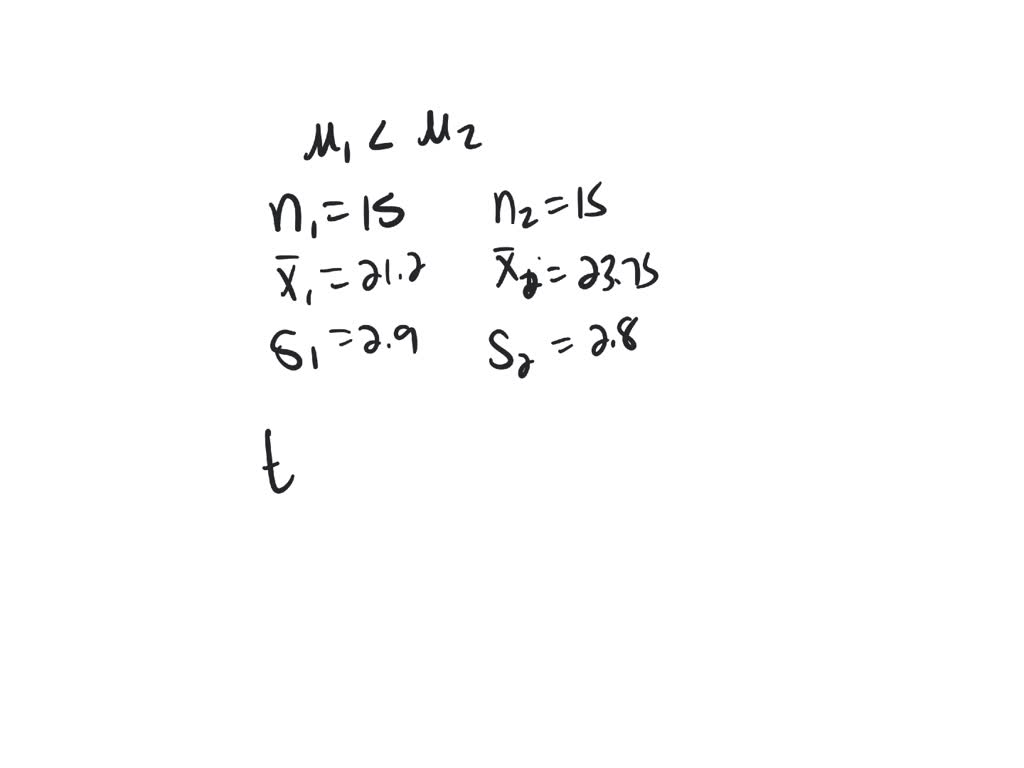 μ₁ < μ₂
n₁ = 15 n₂ = 15
x̄₁ = 21.2 x̄₂ = 23.75
s₁ = 2.9 s₂ = 2.8
t